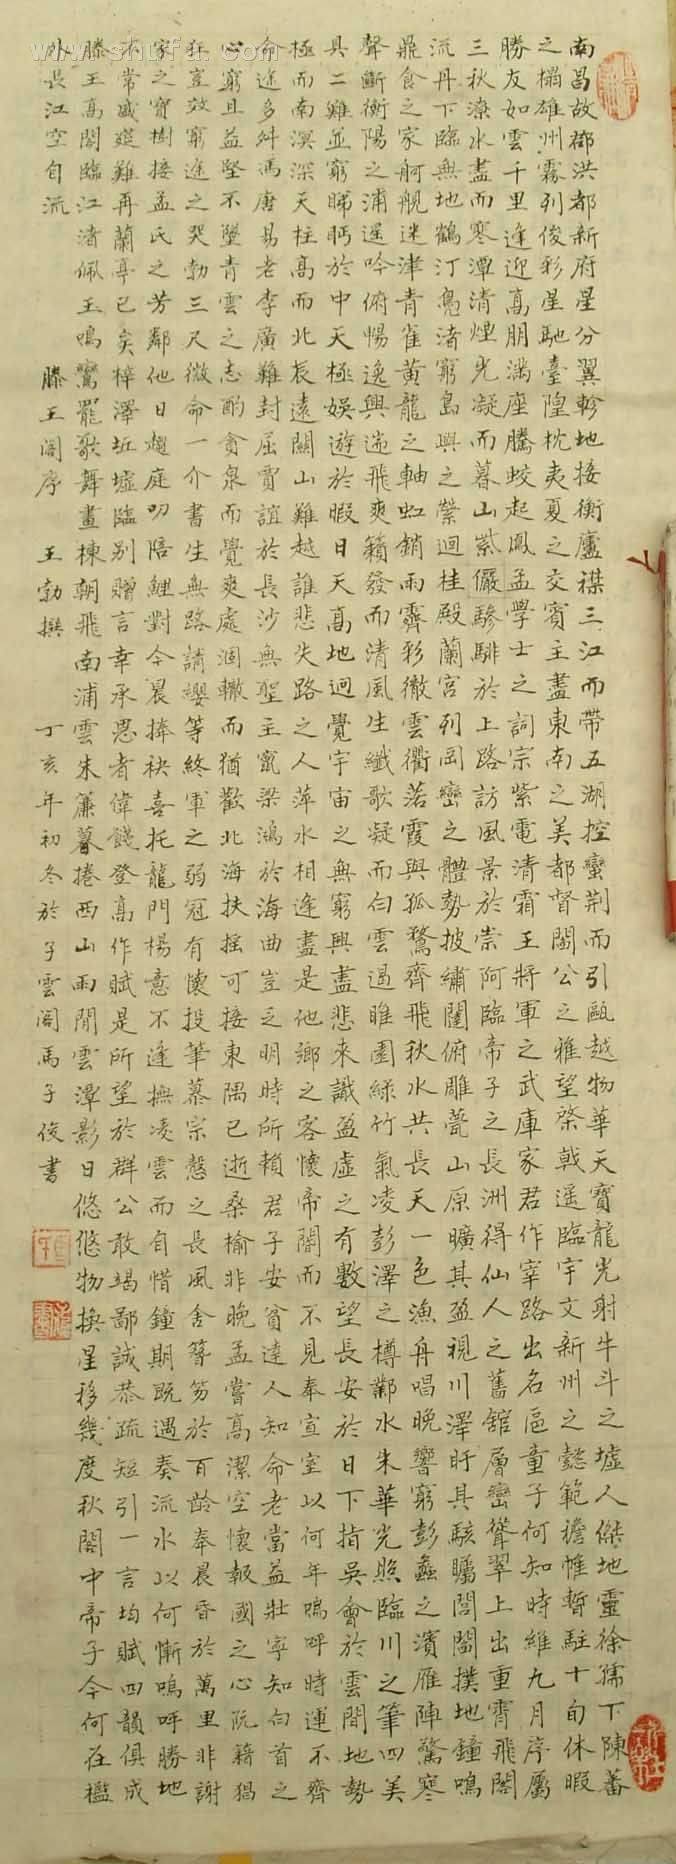 南昌故郡洪都新府星分翼軫地接衡廬襟三江而帶五湖控蠻荊而引甌越物華天寶龍光射牛斗之墟人傑地靈徐孺下陳蕃
之榻雄州霧列俊彩星馳臺隍枕夷夏之交賓主盡東南之美都督閻公之雅望棨戟遙臨宇文新州之懿範襜帷暫駐十旬休暇
勝友如雲千里逢迎高朋滿座騰蛟起鳳孟學士之詞宗紫電清霜王將軍之武庫家君作宰路出名區童子何知時維九月序屬
三秋潦水盡而寒潭清煙光凝而暮山紫儼驂騑於上路訪風景於崇阿臨帝子之長洲得仙人之舊館層巒聳翠上出重霄飛閣
流丹下臨無地鶴汀鳧渚窮島嶼之縈迴桂殿蘭宮列岡巒之體勢披繡闥俯雕甍山原曠其盈視川澤盱其駭矚閭閻撲地鐘鳴
鼎食之家舸艦迷津青雀黃龍之軸虹銷雨霽彩徹雲衢落霞與孤鶩齊飛秋水共長天一色漁舟唱晚響窮彭蠡之濱雁陣驚寒
聲斷衡陽之浦遥吟俯暢逸興遄飛爽籟發而清風生纖歌凝而白雲遏睢園綠竹氣凌彭澤之樽鄴水朱華光照臨川之筆四美
具二難並窮睇眄於中天極娛遊於暇日天高地迥覺宇宙之無窮興盡悲來識盈虛之有數望長安於日下指吳會於雲間地勢
極而南溟深天柱高而北辰遠關山難越誰悲失路之人萍水相逢盡是他鄉之客懷帝閽而不見奉宣室以何年嗚呼時運不齊
命途多舛馮唐易老李廣難封屈賈誼於長沙無聖主竄梁鴻於海曲豈乏明時所賴君子安貧達人知命老當益壯寧知白首之
心窮且益堅不墜青雲之志酌貪泉而覺爽處涸轍而猶歡北海扶搖可接東隅已逝桑榆非晚孟嘗高潔空懷報國之心阮籍猖
狂豈效窮途之哭勃三尺微命一介書生無路請纓等終軍之弱冠有懷投筆慕宗慤之長風舍簪笏於百齡奉晨昏於萬里非謝
家之寶樹接孟氏之芳鄰他日趨庭叨陪鯉對今晨捧袂喜托龍門楊意不逢撫凌雲而自惜鐘期既遇奏流水以何慚嗚呼勝地
不常盛筵難再蘭亭已矣梓澤坵墟臨別贈言幸承恩者偉餞登高作賦是所望於群公敢竭鄙誠恭疏短引一言均賦四韻俱成
滕王高閣臨江渚佩玉鳴鸞罷歌舞畫棟朝飛南浦雲朱簾暮捲西山雨閒雲潭影日悠悠物換星移幾度秋閣中帝子今何在檻
外長江空自流 滕王閣序 王勃撰 丁亥年初冬於子雲閣馬子俊書